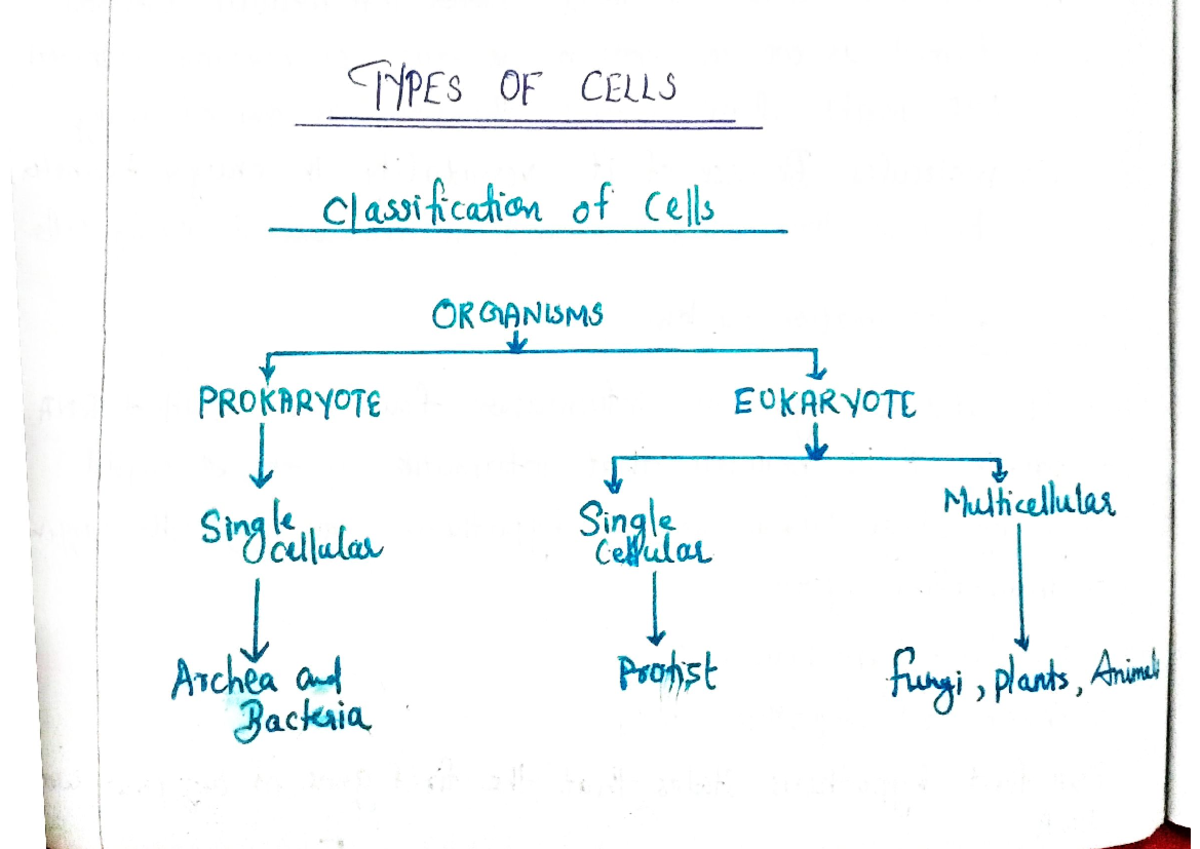 TYPES OF CELLS
Classification of Cells
ORGANISMS
PROKARYOTE
EUKARYOTE
Single
cellular
Single
Cellular
Multicellular
Archea and
Bacteria
Protist
fungi, plants, Animals